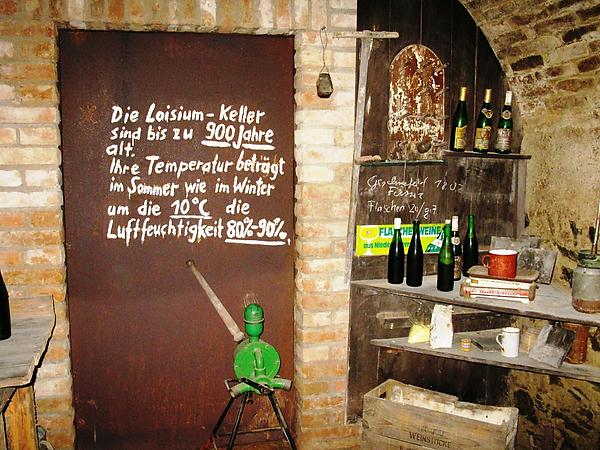 Die Loisium-Keller
sind bis zu 900 Jahre
alt.
Ihre Temperatur beträgt
im Sommer wie im Winter
um die 10°C die
Luftfeuchtigkeit 80%-90%.
Flaschen
FLASCHENWEINE
aus Niederö
WEINSTÖCKE